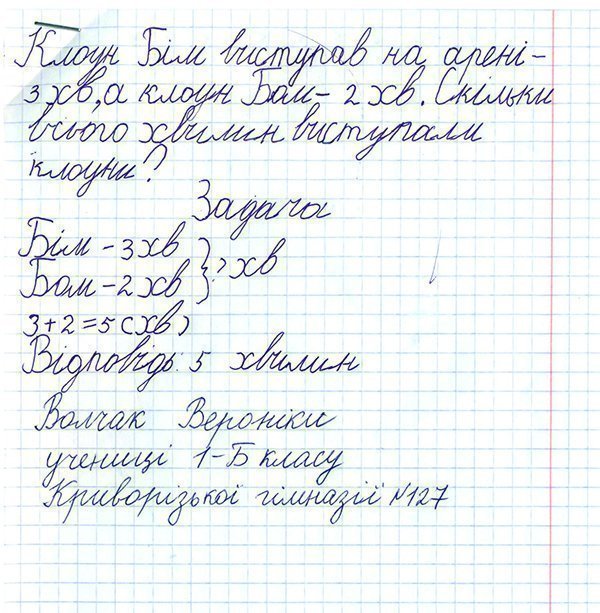 Клоун Бім виступав на арені -
3 хв, а клоун Бом - 2 хв. Скільки
всього хвилин виступали
клоуни?
Задача
Бім - 3 хв
Бом - 2 хв } ? хв
3+2=5 (хв)
Відповідь: 5 хвилин
Волчак Вероніки
учениці 1-Б класу
Криворізької гімназії №127